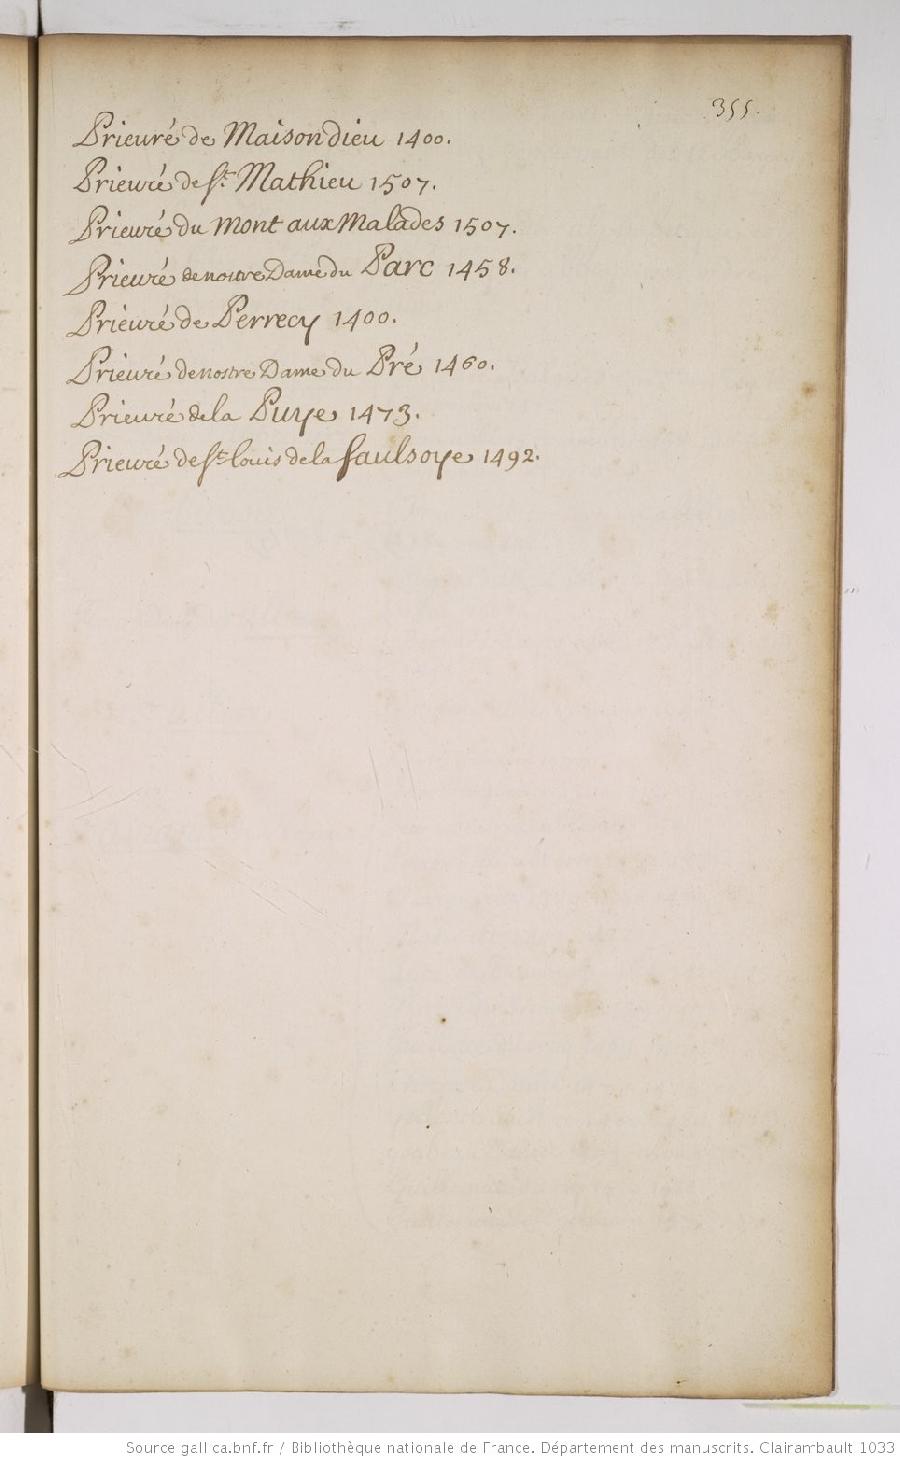 355.
Prieuré de Maison dieu 1400.
Prieuré de St. Mathieu 1507.
Prieuré du Mont aux Malades 1507.
Prieuré de nostre Dame du Parc 1458.
Prieuré de Perrecy 1400.
Prieuré de nostre Dame du Pré 1460.
Prieuré de la Puye 1473.
Prieuré de St. Louis de la Saulsoye 1492.
Source gallica.bnf.fr / Bibliothèque nationale de France. Département des manuscrits. Clairambault 1033